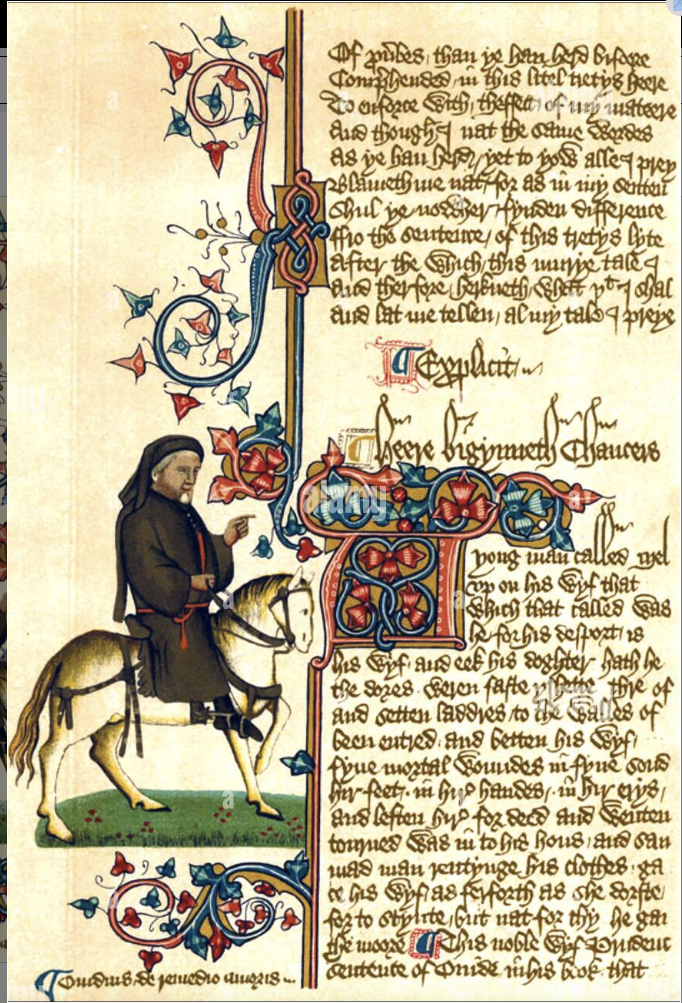 Of prů̄bes / than ye han herd bifore
Comp̱hended / in this litel tretys heere
To enforce with / theffect of my mateere
And though I nat the same wordes
as ye han herd / yet to yow alle I prey
Blameth me nat / for as in my senten
Shul ye nowher fynden difference
ffro the sentence / of this tretys lyte
After the which / this murye tale I
And therfore herkneth / what yt I shal
And lat me tellen / al my tale I preye
Explicit
Heere bigynneth Chaucers
yong man called Mel
vp on his wyf that
which that called was
he for his desport is
his wyf / and eek his doghter hath he
the dores weren faste yshette thre of
and setten laddres / to the walles of
been entred / and betten his wyf /
fyue mortal woundes in fyue sond
hir feet / in hir handes / in hir erys /
and leften hir for deed and wenten
torned was in to his hous / and sau
mad man rentynge his clothes ga
ce his wyf / as ferforth as she dorste
for to stynte / but nat for thy he gan
the moore This noble wyf Prudenc
sentence of Ouide in his book that
Ouidius de remedio amoris
alamy